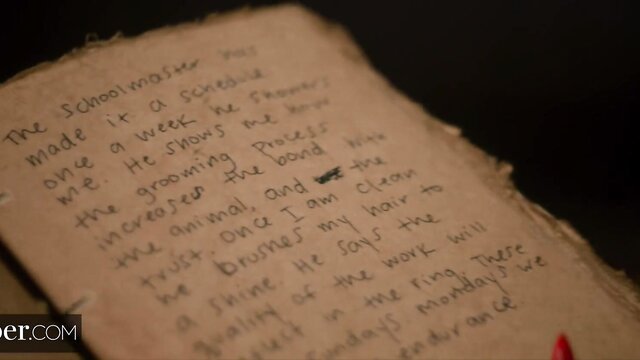 The schoolmaster has
made it a schedule
once a week he showers
me. He shows me how
the grooming process
increases the bond with
the animal, and the
trust. Once I am clean
he brushes my hair to
a shine. He says the
quality of the work will
in the ring. These
Sundays mondays we
endurance.
per.COM